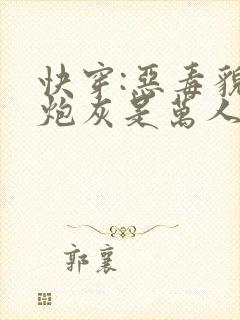 快穿:惡毒貌
炮灰是萬人
郭襄